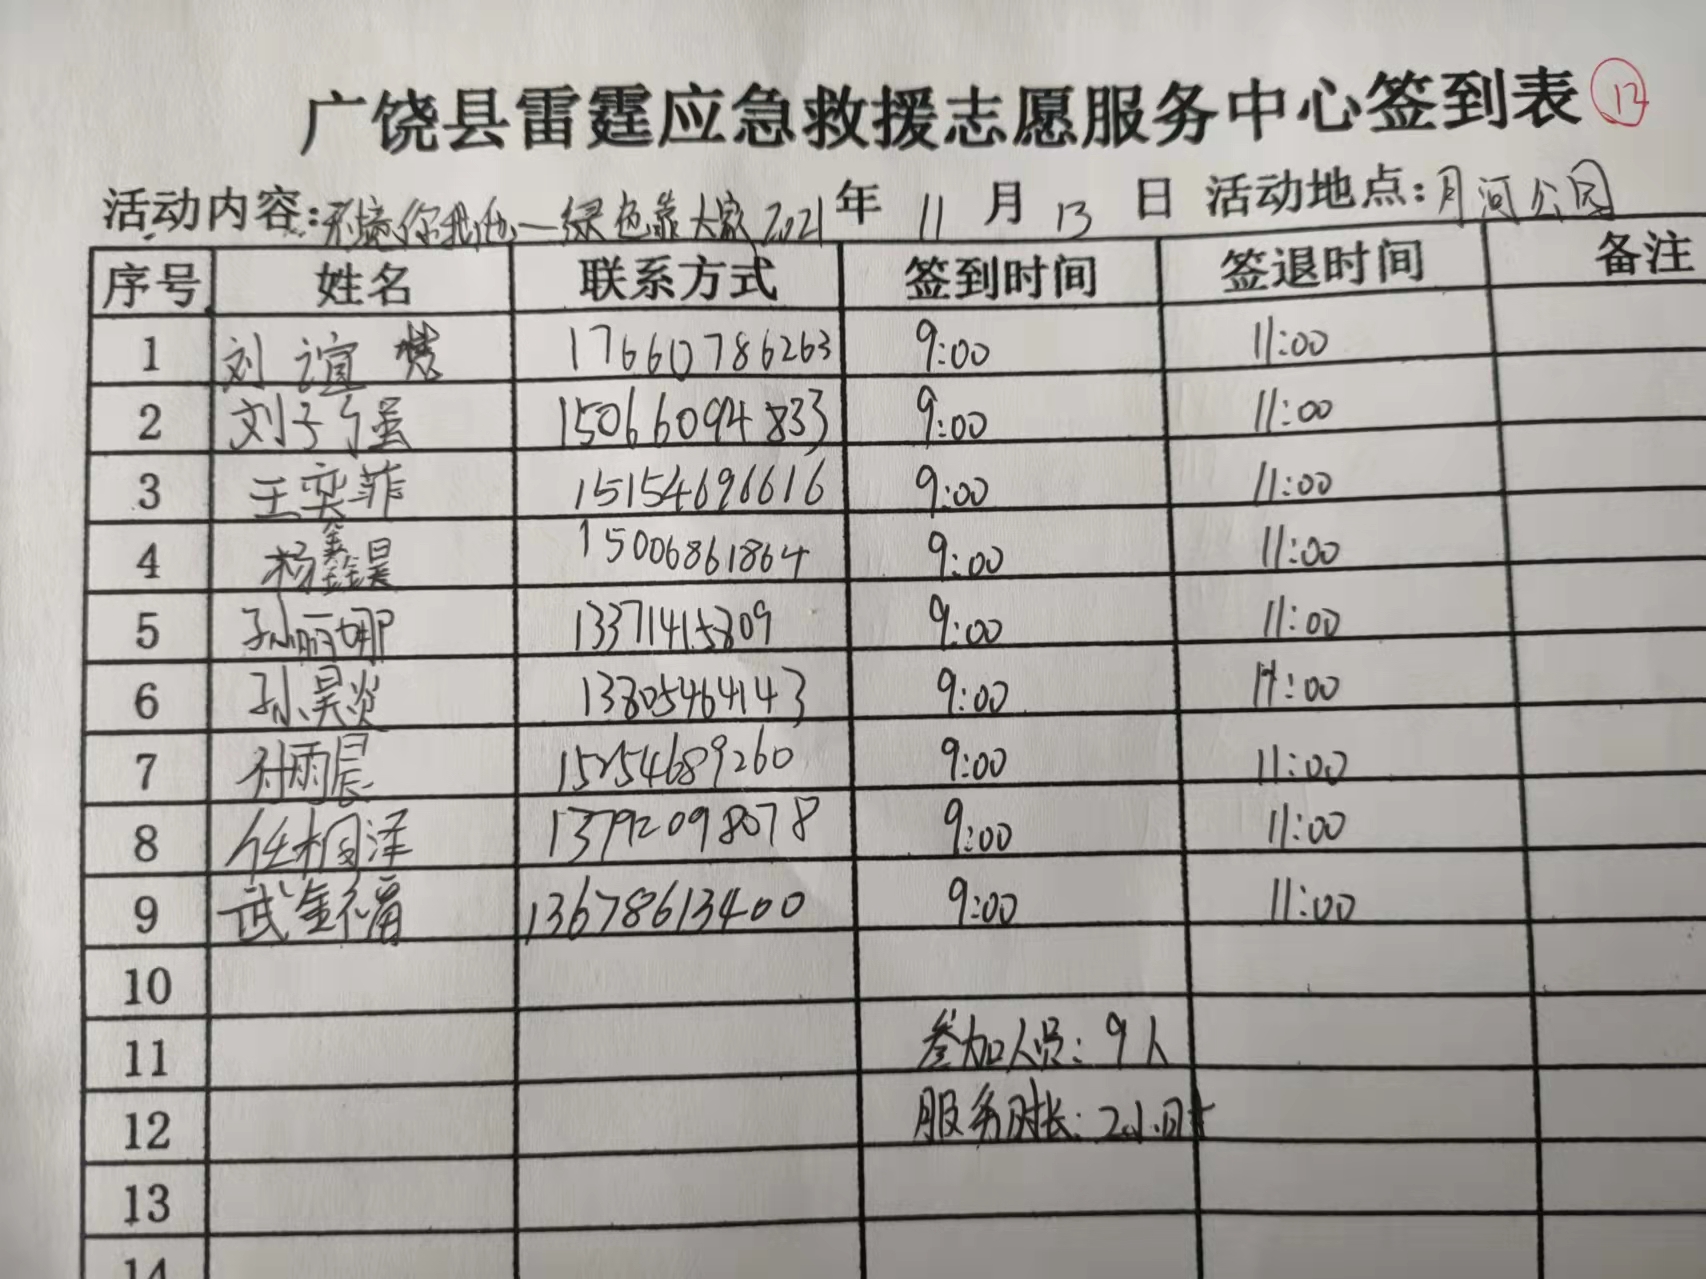 广饶县雷霆应急救援志愿服务中心签到表 12
活动内容:环境你我他—绿色靠大家 2021年 11月 13日 活动地点:月河公园
序号 姓名 联系方式 签到时间 签退时间 备注
1 刘谊 17660786263 9:00 11:00
2 刘子 15066094833 9:00 11:00
3 王奕菲 15154696616 9:00 11:00
4 杨鑫昊 15006861864 9:00 11:00
5 孙丽娜 13371415809 9:00 11:00
6 孙昊炎 13805464143 9:00 11:00
7 付雨晨 15254689260 9:00 11:00
8 任桐泽 13792098078 9:00 11:00
9 武金 13678613400 9:00 11:00
10
11 参加人员:9人
12 服务时长:2小时
13
14